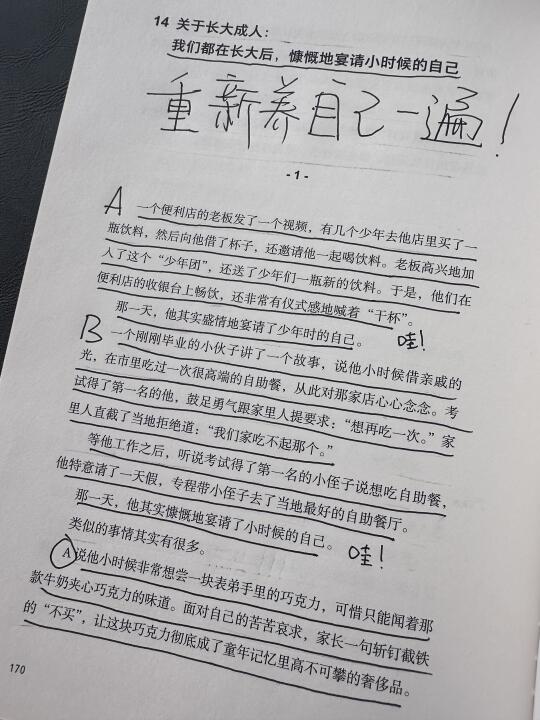 14 关于长大成人：
我们都在长大后，慷慨地宴请小时候的自己
重新养自己一遍！
- 1 -
A 一个便利店的老板发了一个视频，有几个少年去他店里买了一
瓶饮料，然后向他借了杯子，还邀请他一起喝饮料。老板高兴地加
入了这个“少年团”，还送了少年们一瓶新的饮料。于是，他们在
便利店的收银台上畅饮，还非常有仪式感地喊着“干杯”。
那一天，他其实盛情地宴请了少年时的自己。 哇！
B 一个刚刚毕业的小伙子讲了一个故事，说他小时候借亲戚的
光，在市里吃过一次很高端的自助餐，从此对那家店心心念念。考
试得了第一名的他，鼓足勇气跟家里人提要求：“想再吃一次。”家
里人直截了当地拒绝道：“我们家吃不起那个。”
等他工作之后，听说考试得了第一名的小侄子说想吃自助餐，
他特意请了一天假，专程带小侄子去了当地最好的自助餐厅。
那一天，他其实慷慨地宴请了小时候的自己。 哇！
类似的事情其实有很多。
A说他小时候非常想尝一块表弟手里的巧克力，可惜只能闻着那
款牛奶夹心巧克力的味道。面对自己的苦苦哀求，家长一句斩钉截铁
的“不买”，让这块巧克力彻底成了童年记忆里高不可攀的奢侈品。
170